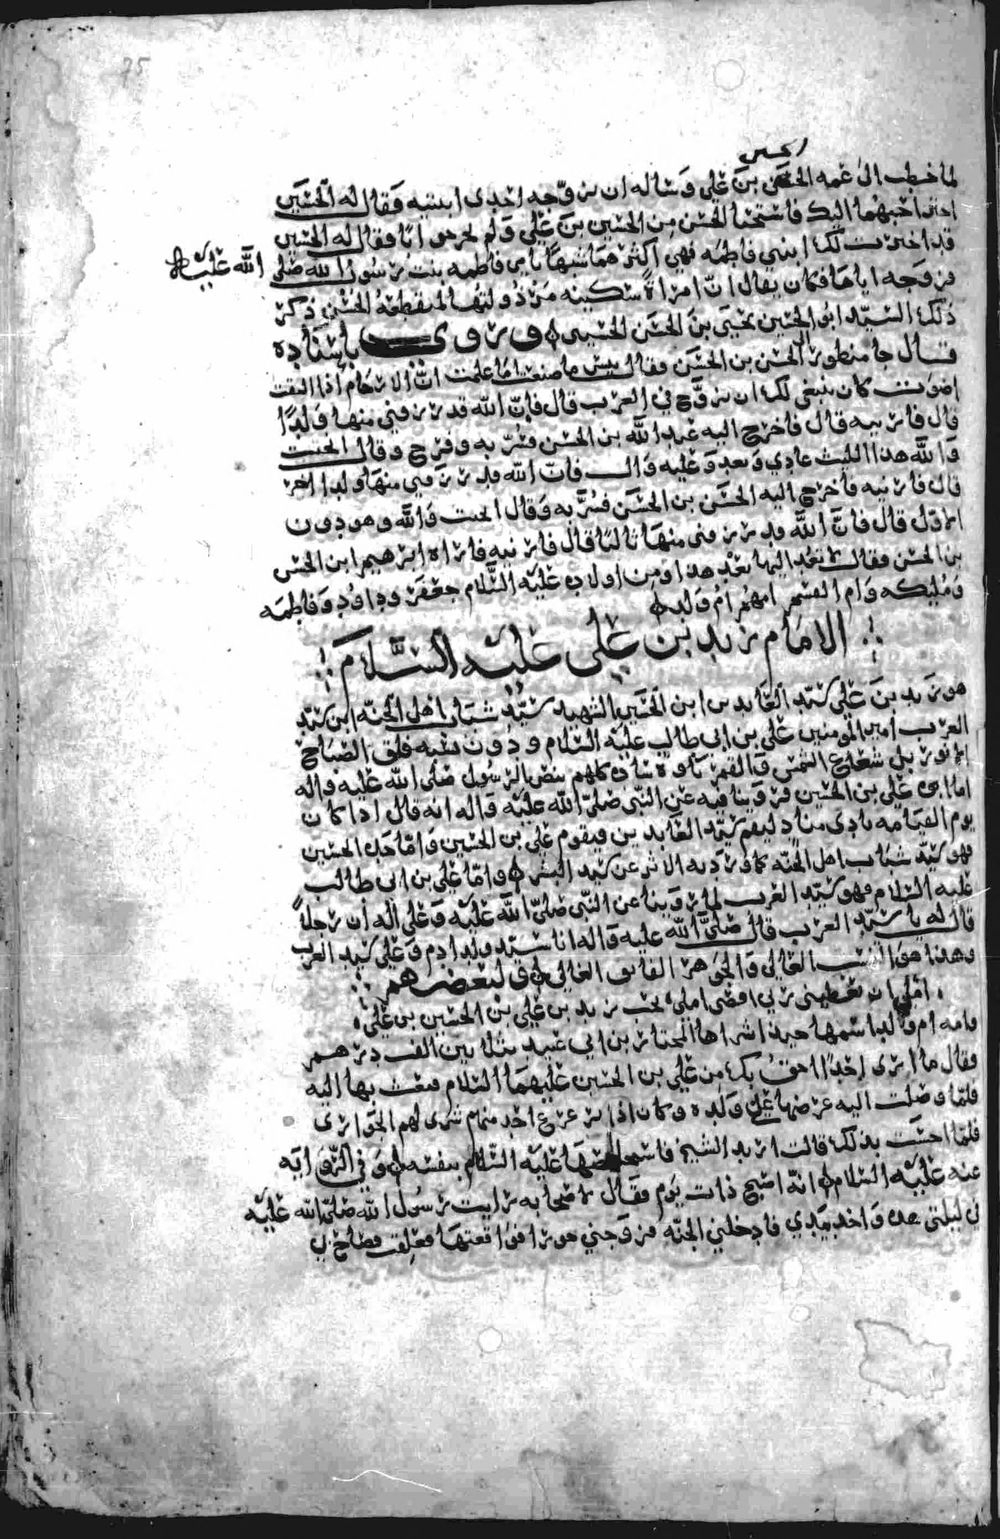 75
الحسين
لما خطب الى عمه الحسن بن علي وساله ان يزوجه احدى ابنتيه فقال له الحسين
اختر احبهما اليك فاستحيا الحسن من الحسين بن علي ولم يحر جوابا فقال له الحسين
قد اخترت لك ابنتي فاطمه فهي اكثرهما شبها بامي فاطمه بنت رسول الله صلى الله عليه
فزوجه اياها فكان يقال ان امراة سكينه مردولتها لمنقطعة الحسن ذكر
ذلك السيد ابو الحسين يحيى بن الحسن الحسيني وروى باسناده
قال جا منظور الى الحسن بن الحسن فقال بيس ما صنعت اما علمت ان الارحام اذا التقت
اضوت كان ينبغي لك ان تزوج في العرب قال فان الله قد رزقني منها ولدا
قال فارنيه قال فاخرج اليه عبد الله بن الحسن فسر به وفرح وقال انجبت
والله هذا الليث عادي ومعدو عليه قال فان الله قد رزقني منها ولدا اخر
قال فارنيه فاخرج اليه الحسن بن الحسن فسر به وقال انجبت والله وهو دون
الاول قال فان الله قد رزقني منها ثالثا قال فارنيه فاراه ابرهيم ابن الحسن
بن الحسن فقال لا تعد اليها بعد هذا ومن اولاده عليه السلام جعفر وداود وفاطمه
ومليكه وام القسم امهم ام ولد
الامام زيد بن علي عليه السلام
هو زيد بن علي سيد العابدين ابن الحسين الشهيد سيد شباب اهل الجنه ابن سيد
العرب امير المومنين علي بن ابي طالب عليه السلام ودون نسبه فلق الصباح
لا نور بل شعاع الشمس والقمر باوه سادة كلهم بنص الرسول صلى الله عليه واله
اما ابوه علي بن الحسين فروينا فيه عن النبي صلى الله عليه واله انه قال اذا كان
يوم القيامه نادى مناد ليقم سيد العابدين فيقوم علي بن الحسين واما جده الحسين
فهو سيد شباب اهل الجنه كما ورد به الاثر عن سيد البشر واما علي بن ابي طالب
عليه السلام فهو سيد العرب لما روينا عن النبي صلى الله عليه وعلى اله ان رجلا
قال له يا سيد العرب قال صلى الله عليه واله انا سيد ولد ادم وعلي سيد العرب
وهذا هو النسب العالي والجوهر الفايق الغالي ولبعضهم
املي ان تعطيني ربي اقصى املي تحت زيد بن علي بن الحسين بن علي
وامه ام ولد اسمها جيدا شراها المختار بن ابي عبيد بثلاثين الف درهم
فقال ما ارى احدا احق بك من علي بن الحسين عليهما السلام فبعث بها اليه
فلما وصلت اليه عرضها على ولده وكان اذا ترعرع احد منهم شرى لهم الجواري
فلما احست بذلك قالت اريد الشيخ فاستخلصها عليه السلام بنفسه وفي الروايه
عنه عليه السلام انه اصبح ذات يوم فقال لاصحابه رايت رسول الله صلى الله عليه
في ليلتي هذه واخذ بيدي فادخلني الجنه فزوجني حورا فواقعتها فعلقت فصاح بي